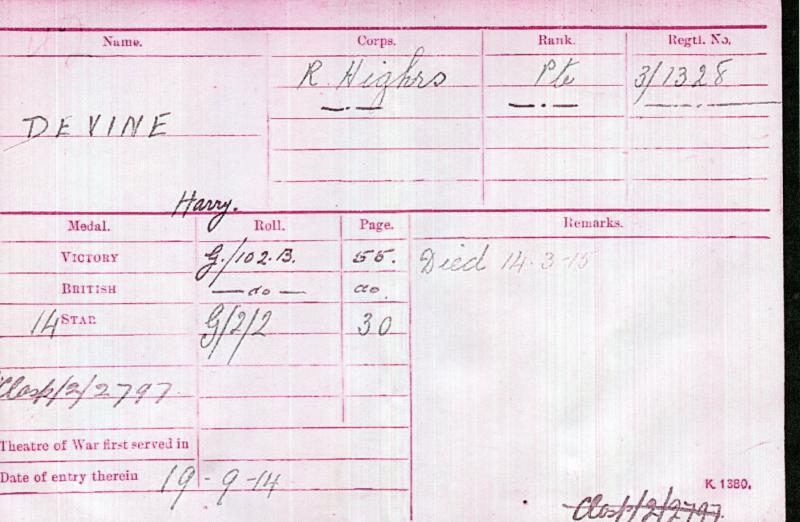 Name. Corps. Rank. Regtl. No.
R. Highrs Pte 3/1328
DEVINE
Harry.
Medal. Roll. Page. Remarks.
VICTORY G./102.B. 55. Died 14-3-15
BRITISH — do — do.
14 STAR G/2/2 30
Clasp/2/2797
Theatre of War first served in
Date of entry therein 19-9-14
K 1380.
Clasp/2/2797.